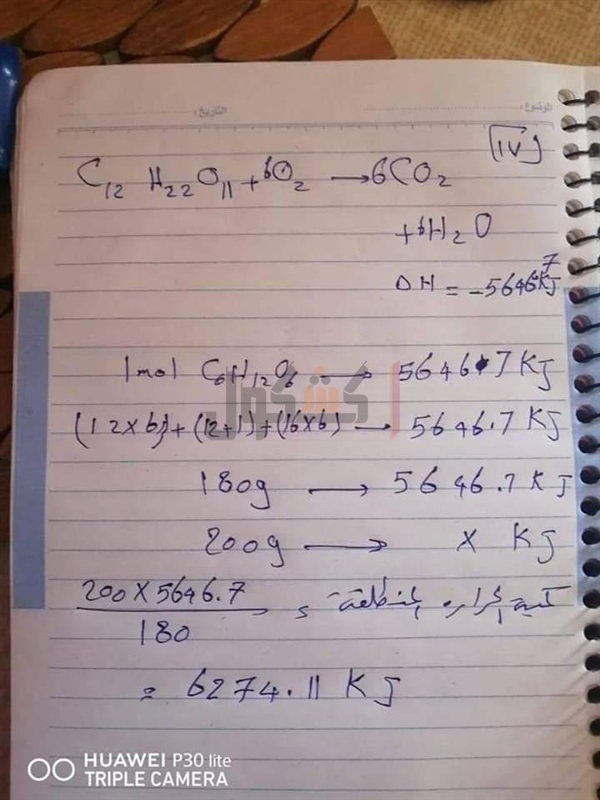 الموضوع: التاريخ:
[IV]
C12 H22O11 + 6O2 → 6CO2
+ 6H2O
ΔH = -5646.7 KJ
1mol C6H12O6 → 5646.7 KJ
كشكول
(12x6)+(12+1)+(16x6) → 5646.7 KJ
180g → 5646.7 KJ
200g → x KJ
200x5646.7
180
= 6274.11 KJ
HUAWEI P30 lite
TRIPLE CAMERA